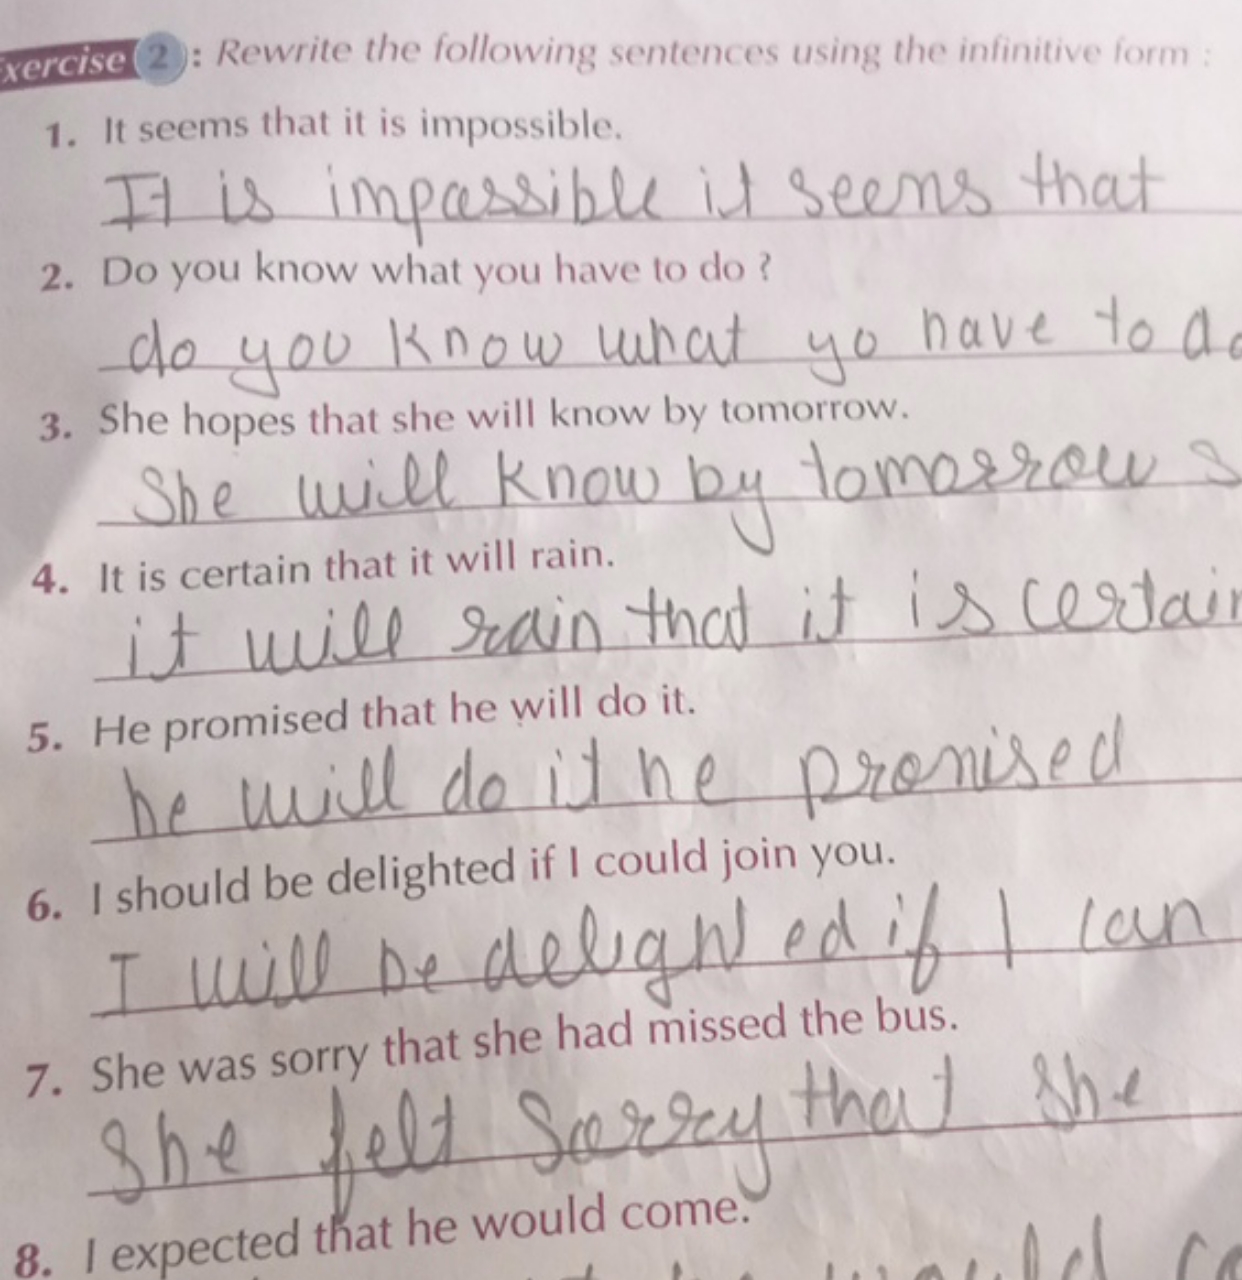 xercise 2 : Rewrite the following sentences using the infinitive form :
1. It seems that it is impossible.
It is impassible it seems that
2. Do you know what you have to do ?
do you know what yo have to do
3. She hopes that she will know by tomorrow.
She will know by tomorrow s
4. It is certain that it will rain.
it will rain that it is certain
5. He promised that he will do it.
he will do it he promised
6. I should be delighted if I could join you.
I will be delighted if I can
7. She was sorry that she had missed the bus.
She felt Sorry that she
8. I expected that he would come.
would co